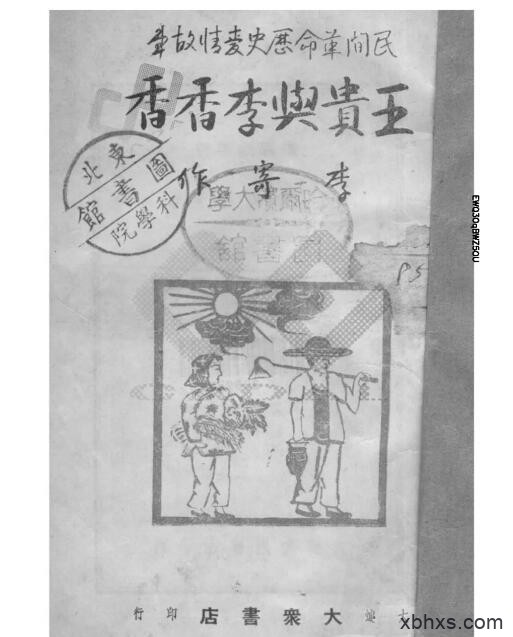 民間革命歷史愛情故事
王貴與李香香
李寄作
東北
圖書館
科學院
哈爾濱大學
圖書館
大連 大衆書店 印行
xbhxs.com